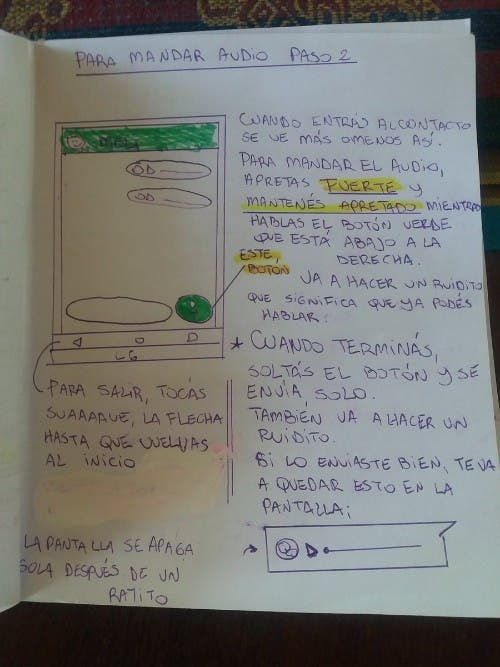 PARA MANDAR AUDIO PASO 2
CUANDO ENTRÁS AL CONTACTO
SE VE MÁS O MENOS ASÍ.
PARA MANDAR EL AUDIO,
APRETAS FUERTE Y
MANTENÉS APRETADO MIENTRAS
HABLAS EL BOTÓN VERDE
QUE ESTÁ ABAJO A LA
DERECHA.
ESTE,
BOTÓN
VA A HACER UN RUIDITO
QUE SIGNIFICA QUE YA PODÉS
HABLAR.
LG
* CUANDO TERMINÁS,
SOLTÁS EL BOTÓN Y SE
ENVÍA, SOLO.
TAMBIÉN VA A HACER UN
RUIDITO.
SI LO ENVIASTE BIEN, TE VA
A QUEDAR ESTO EN LA
PANTALLA;
PARA SALIR, TOCÁS
SUAAAAVE, LA FLECHA
HASTA QUE VUELVAS
AL INICIO
LA PANTALLA SE APAGA
SOLA DESPUÉS DE UN
RATITO